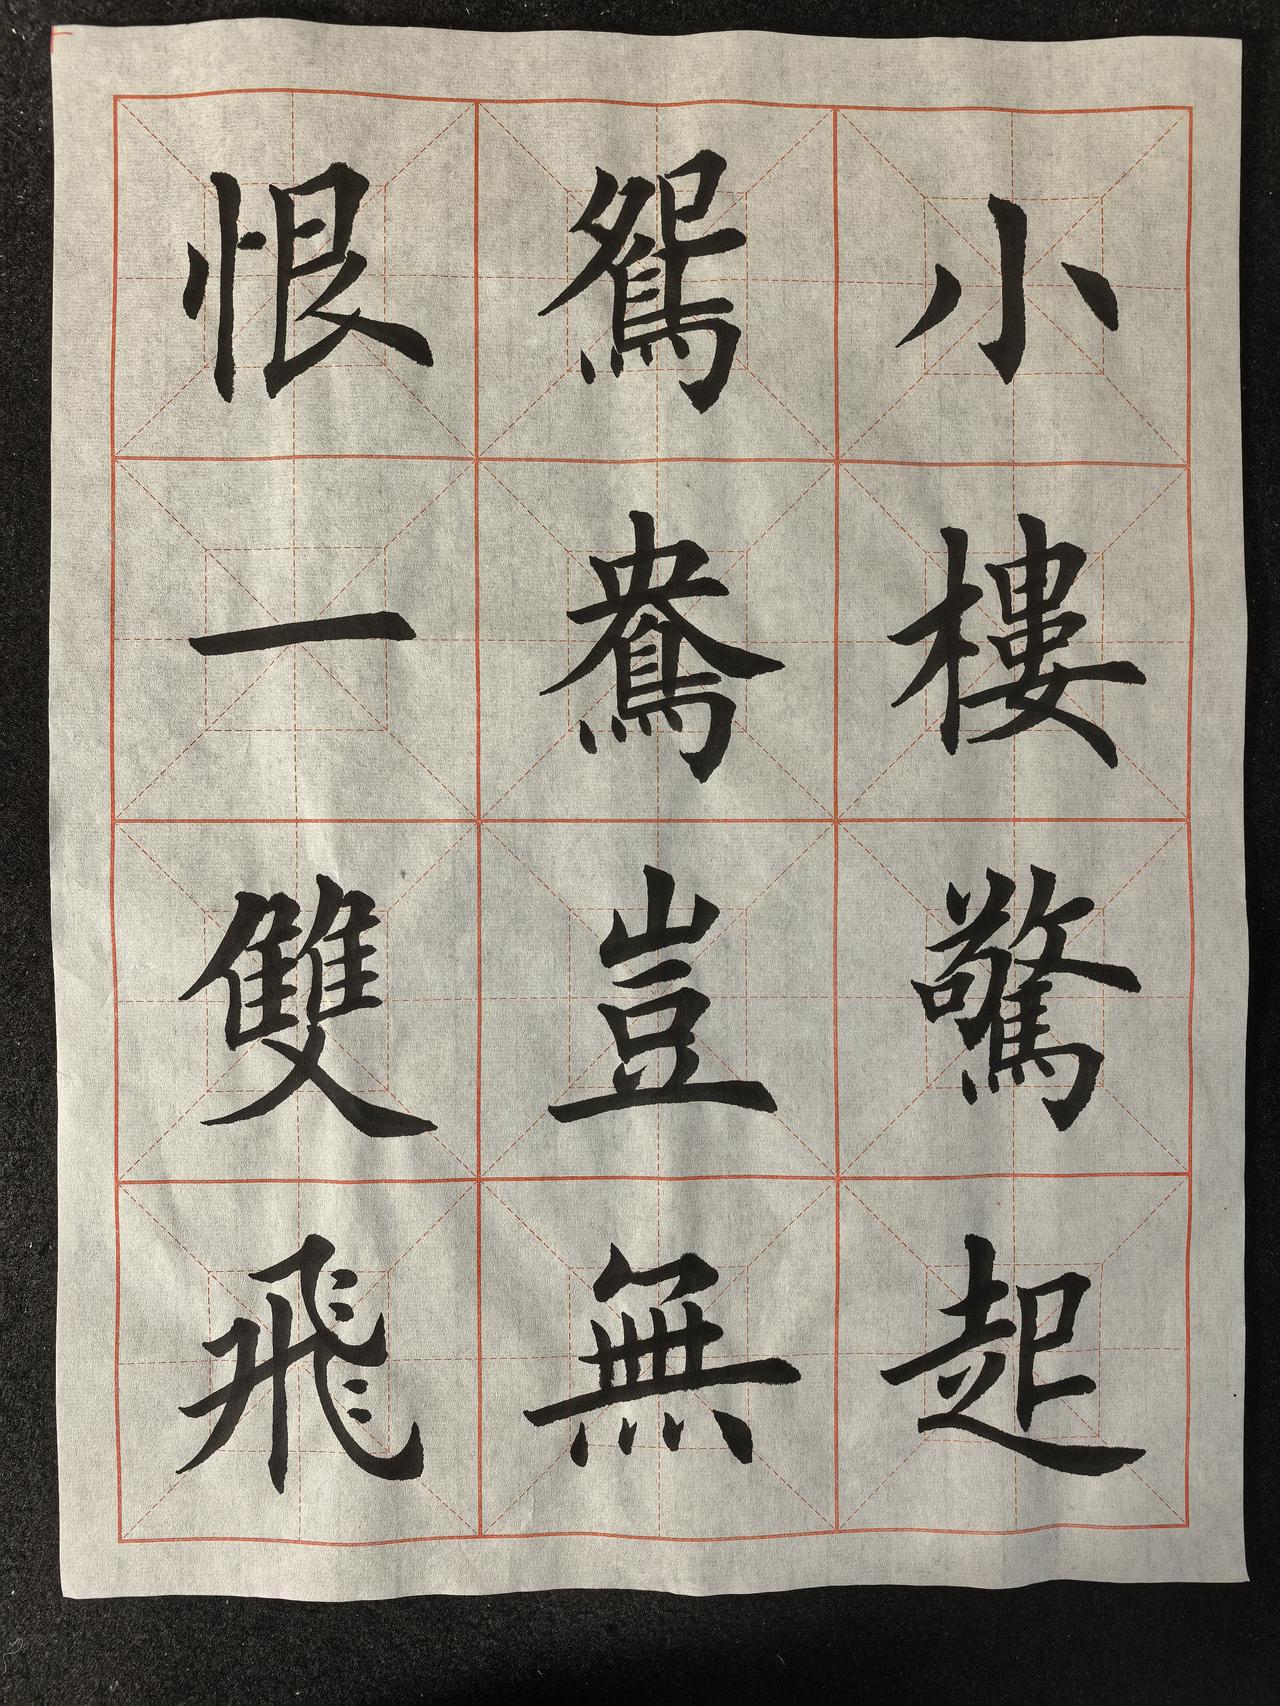 小樓驚起
鴛鴦豈無
恨一雙飛